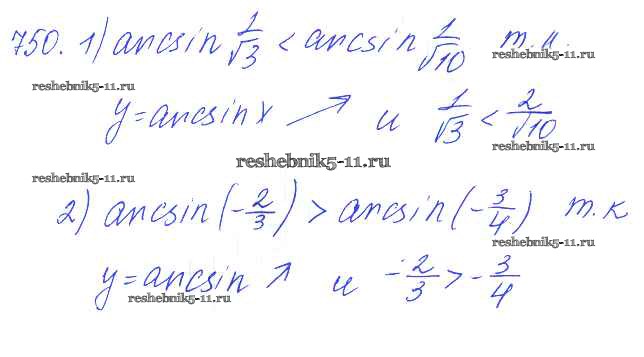 750. 1) arcsin 1/√3 < arcsin 1/√10 т.к.
reshebnik5-11.ru
reshebnik5-11.ru
y=arcsin x ↗ и 1/√3 < 2/√10
reshebnik5-11.ru
reshebnik5-11.ru
reshebnik5-11.ru
2) arcsin(-2/3) > arcsin(-3/4) т.к
reshebnik5-11.ru
y=arcsin ↗ и -2/3 > -3/4
reshebnik5-11.ru